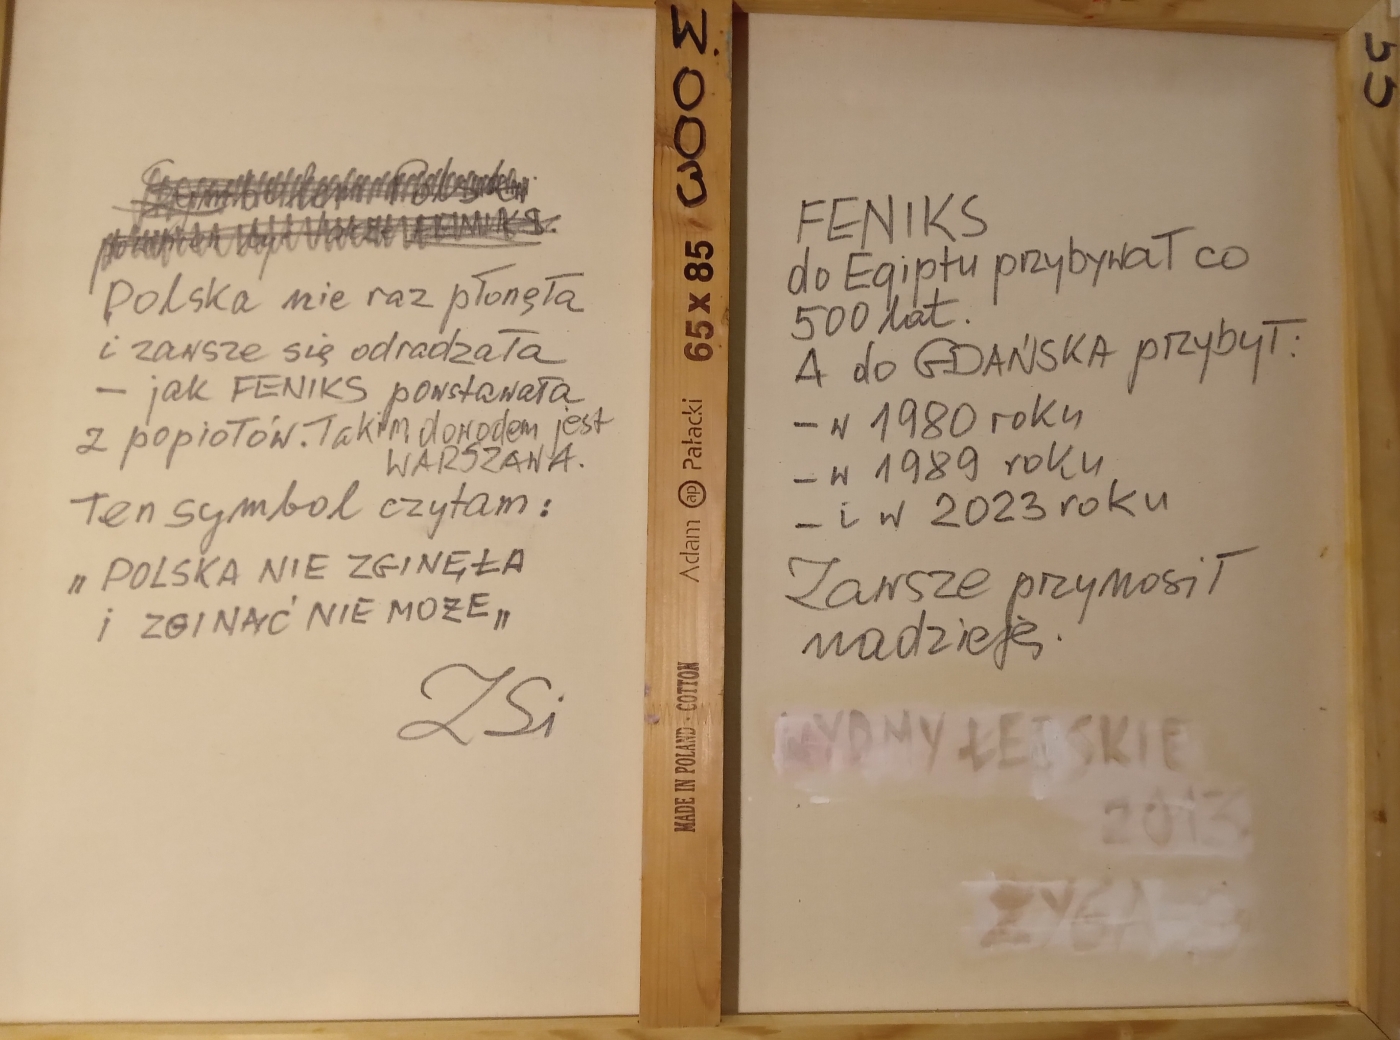 Polska nie raz płonęła
i zawsze się odradzała
– jak FENIKS powstawała
z popiołów. Takim dowodem jest
WARSZAWA.
Ten symbol czytam:
„POLSKA NIE ZGINĘŁA
i ZGINĄĆ NIE MOŻE„
ZSi
65 x 85
Adam ap Pałacki
MADE IN POLAND · COTTON
FENIKS
do Egiptu przybywał co
500 lat.
A do GDAŃSKA przybył:
– w 1980 roku
– w 1989 roku
– i w 2023 roku
Zawsze przynosił
nadzieję.
WYDMY ŁEBSKIE
2013
ZYGA S